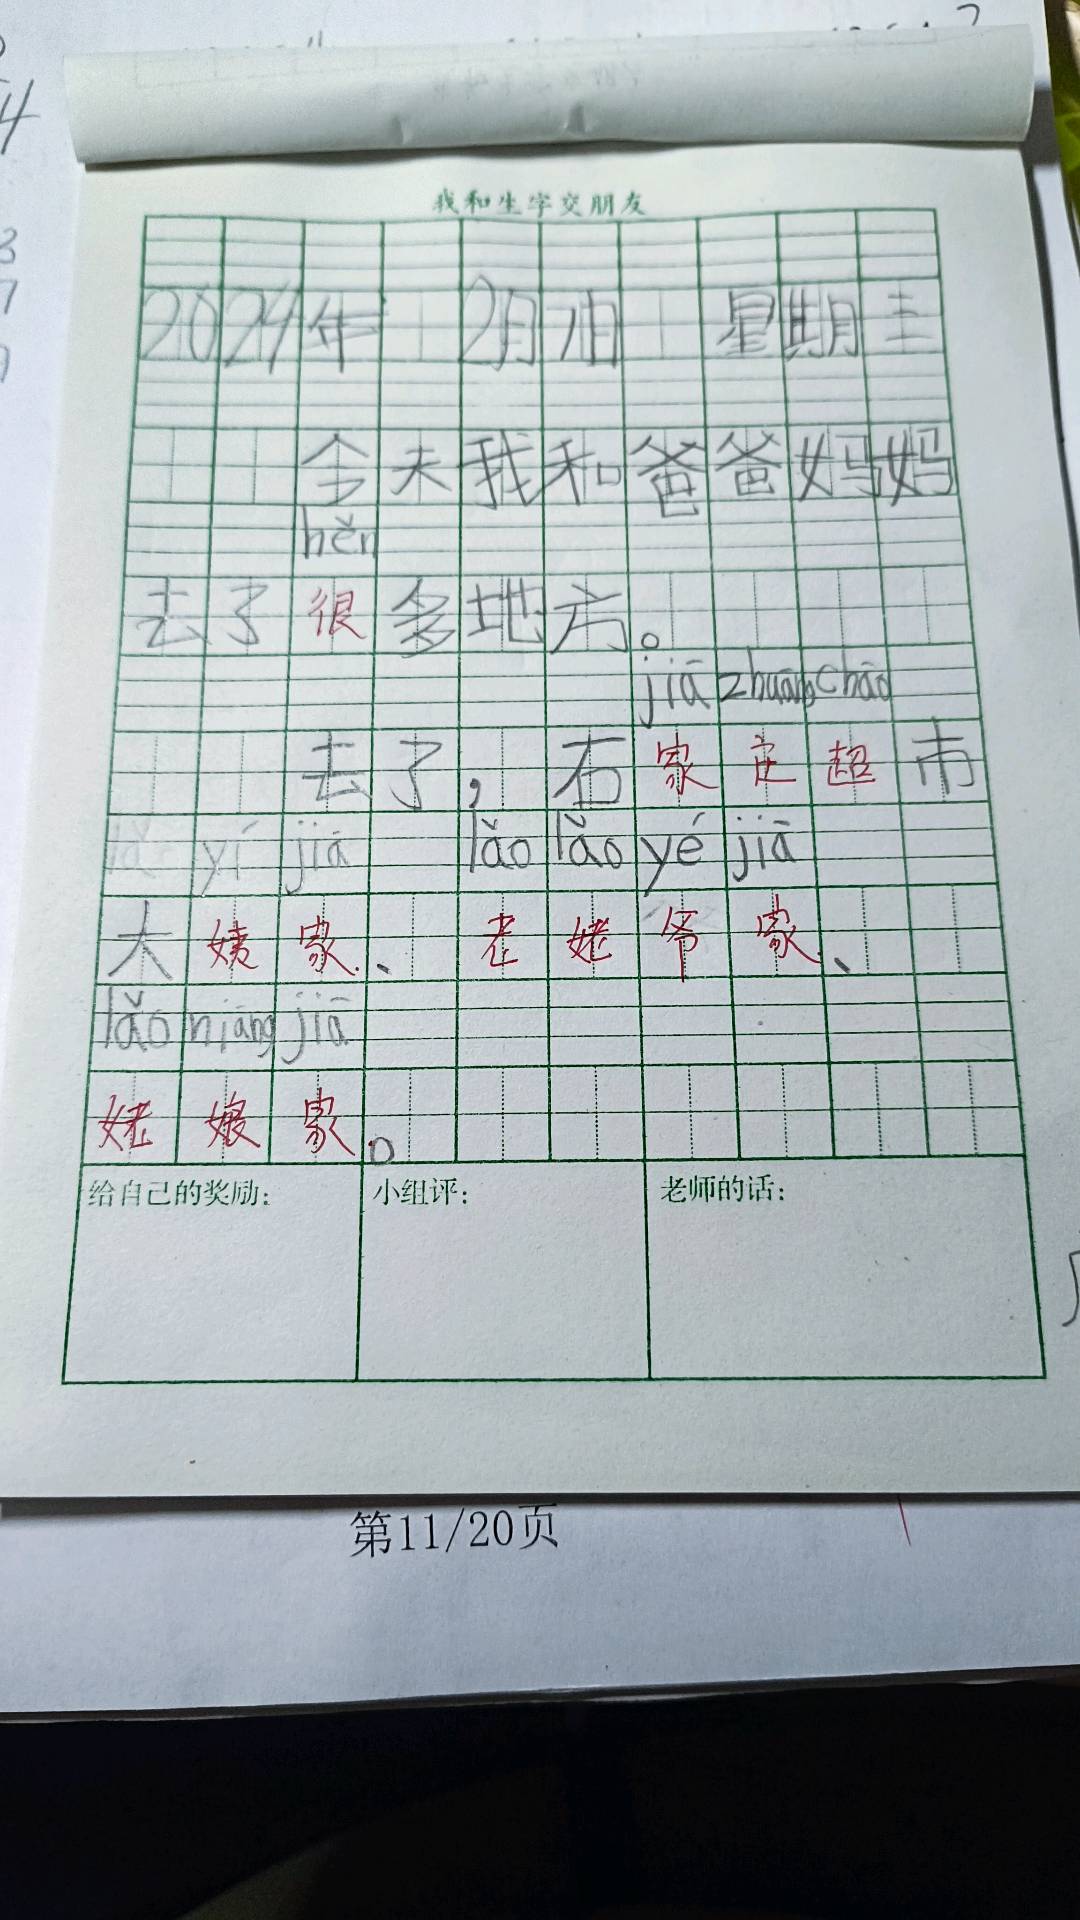 我和生字交朋友
2024年 2月7日 星期三
今天我和爸爸妈妈
hěn
去了很多地方。
jiā zhuāng chāo
去了,石家庄超市
yí jiā lǎo lǎo yé jiā
大姨家、老姥爷家、
lǎo niáng jiā
姥娘家。
给自己的奖励: 小组评: 老师的话:
第11/20页